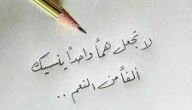 لا تجعل همًا واحدًا ينسيك
ألفًا من النعم ..